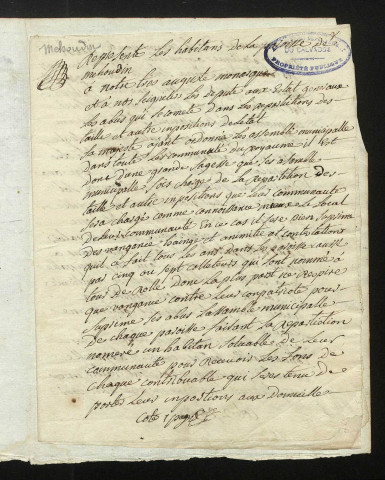 Mehoudin
Represente Les habitans de la paroisse de
mehoudin
a notre tres auguste monarque
et a nos seigneurs les depute aux Etat generaux
Les abus qui se comete dans Les repartitions des
taille et autre inpositions de letat
Sa majesté ayant ordonné Les assemblé municipalle
dans toute Les communauté du royaume il Est
dont dune grande sagesse que Les assemblé
municipalle sois chargé de La repartition des
taille et autre inpositions que Leur communauté
sera chargé comme connoissance le local
de Leur communauté En ce cas il sera bien suprimé
des vangance haenge et animité et contestations
quil ce fait tous les ans dans la paroisse causé
par cinq ou sept collecteurs qui sont nommé a
tous de Rolle dans La plus part ne respire
que vangance contre Leur conpatriote pour
suprimé Les abus La samblé municipalle
de chaque paroisse faisant La repartition
nomera un habitan solvable de Leur
communauté pour Recevoir Les sons de
chaque contribuable qui sera tenu de
porter Leur inpositions aux
Coté 1 page
DU CALVADOS
PROPRIÉTÉ PUBLIQUE